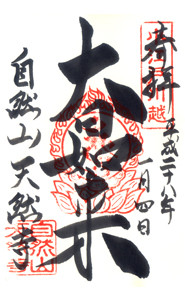 奉拝
平成二十八年
一月四日
大日如来
自然山天然寺